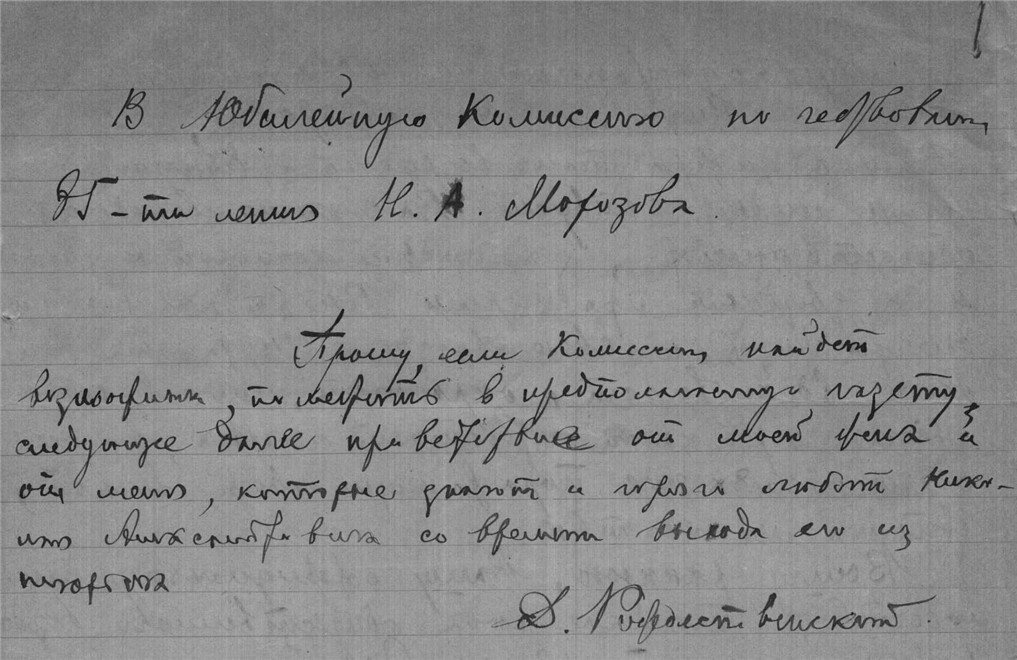 1
В Юбилейную Комиссию по чествованию
75-ти летия Н. А. Морозова.
Прошу, если Комиссия найдет
возможным, поместить в предполагаемую газету,
следующее далее приветствие от моей жены и
от меня, которые знают и горячо любят Нико-
лая Александровича со времени выхода его из
шлиссельбурга
Д. Рождественский.